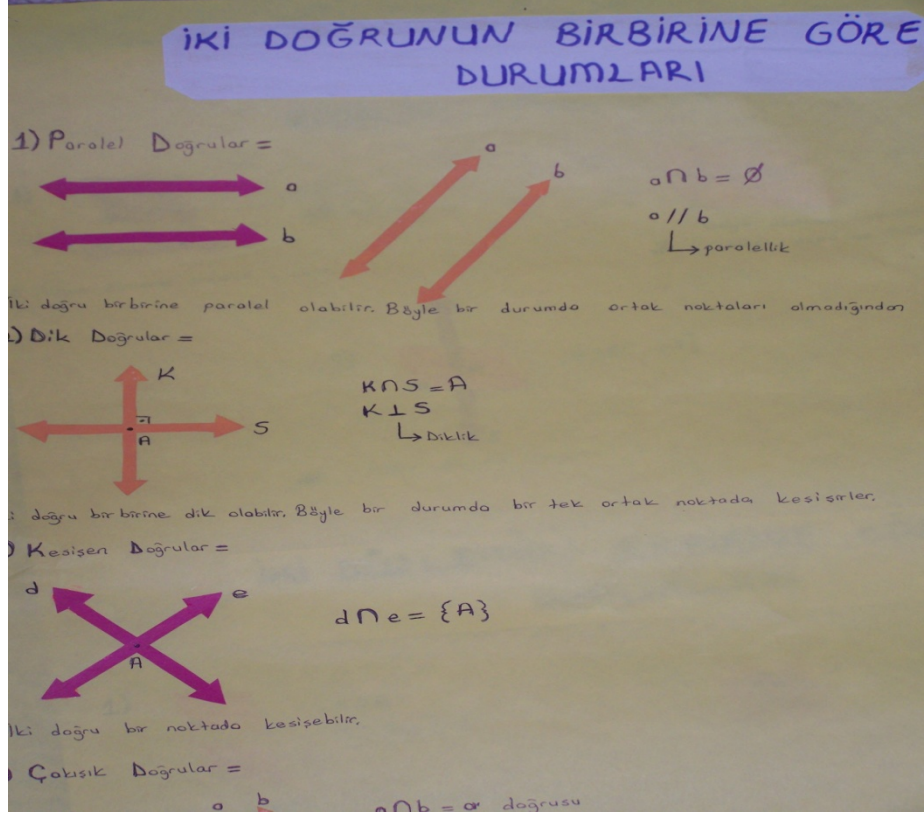 İKİ DOĞRUNUN BİRBİRİNE GÖRE
DURUMLARI
1) Paralel Doğrular =
a
b
a
b
a∩b = Ø
a // b
paralellik
İki doğru birbirine paralel olabilir. Böyle bir durumda ortak noktaları olmadığından
) Dik Doğrular =
K
S
A
K∩S = A
K ⊥ S
Diklik
doğru birbirine dik olabilir. Böyle bir durumda bir tek ortak noktada kesişirler.
) Kesişen Doğrular =
d
e
A
d∩e = {A}
İki doğru bir noktada kesişebilir.
Çakışık Doğrular =
a b
a∩b = a doğrusu